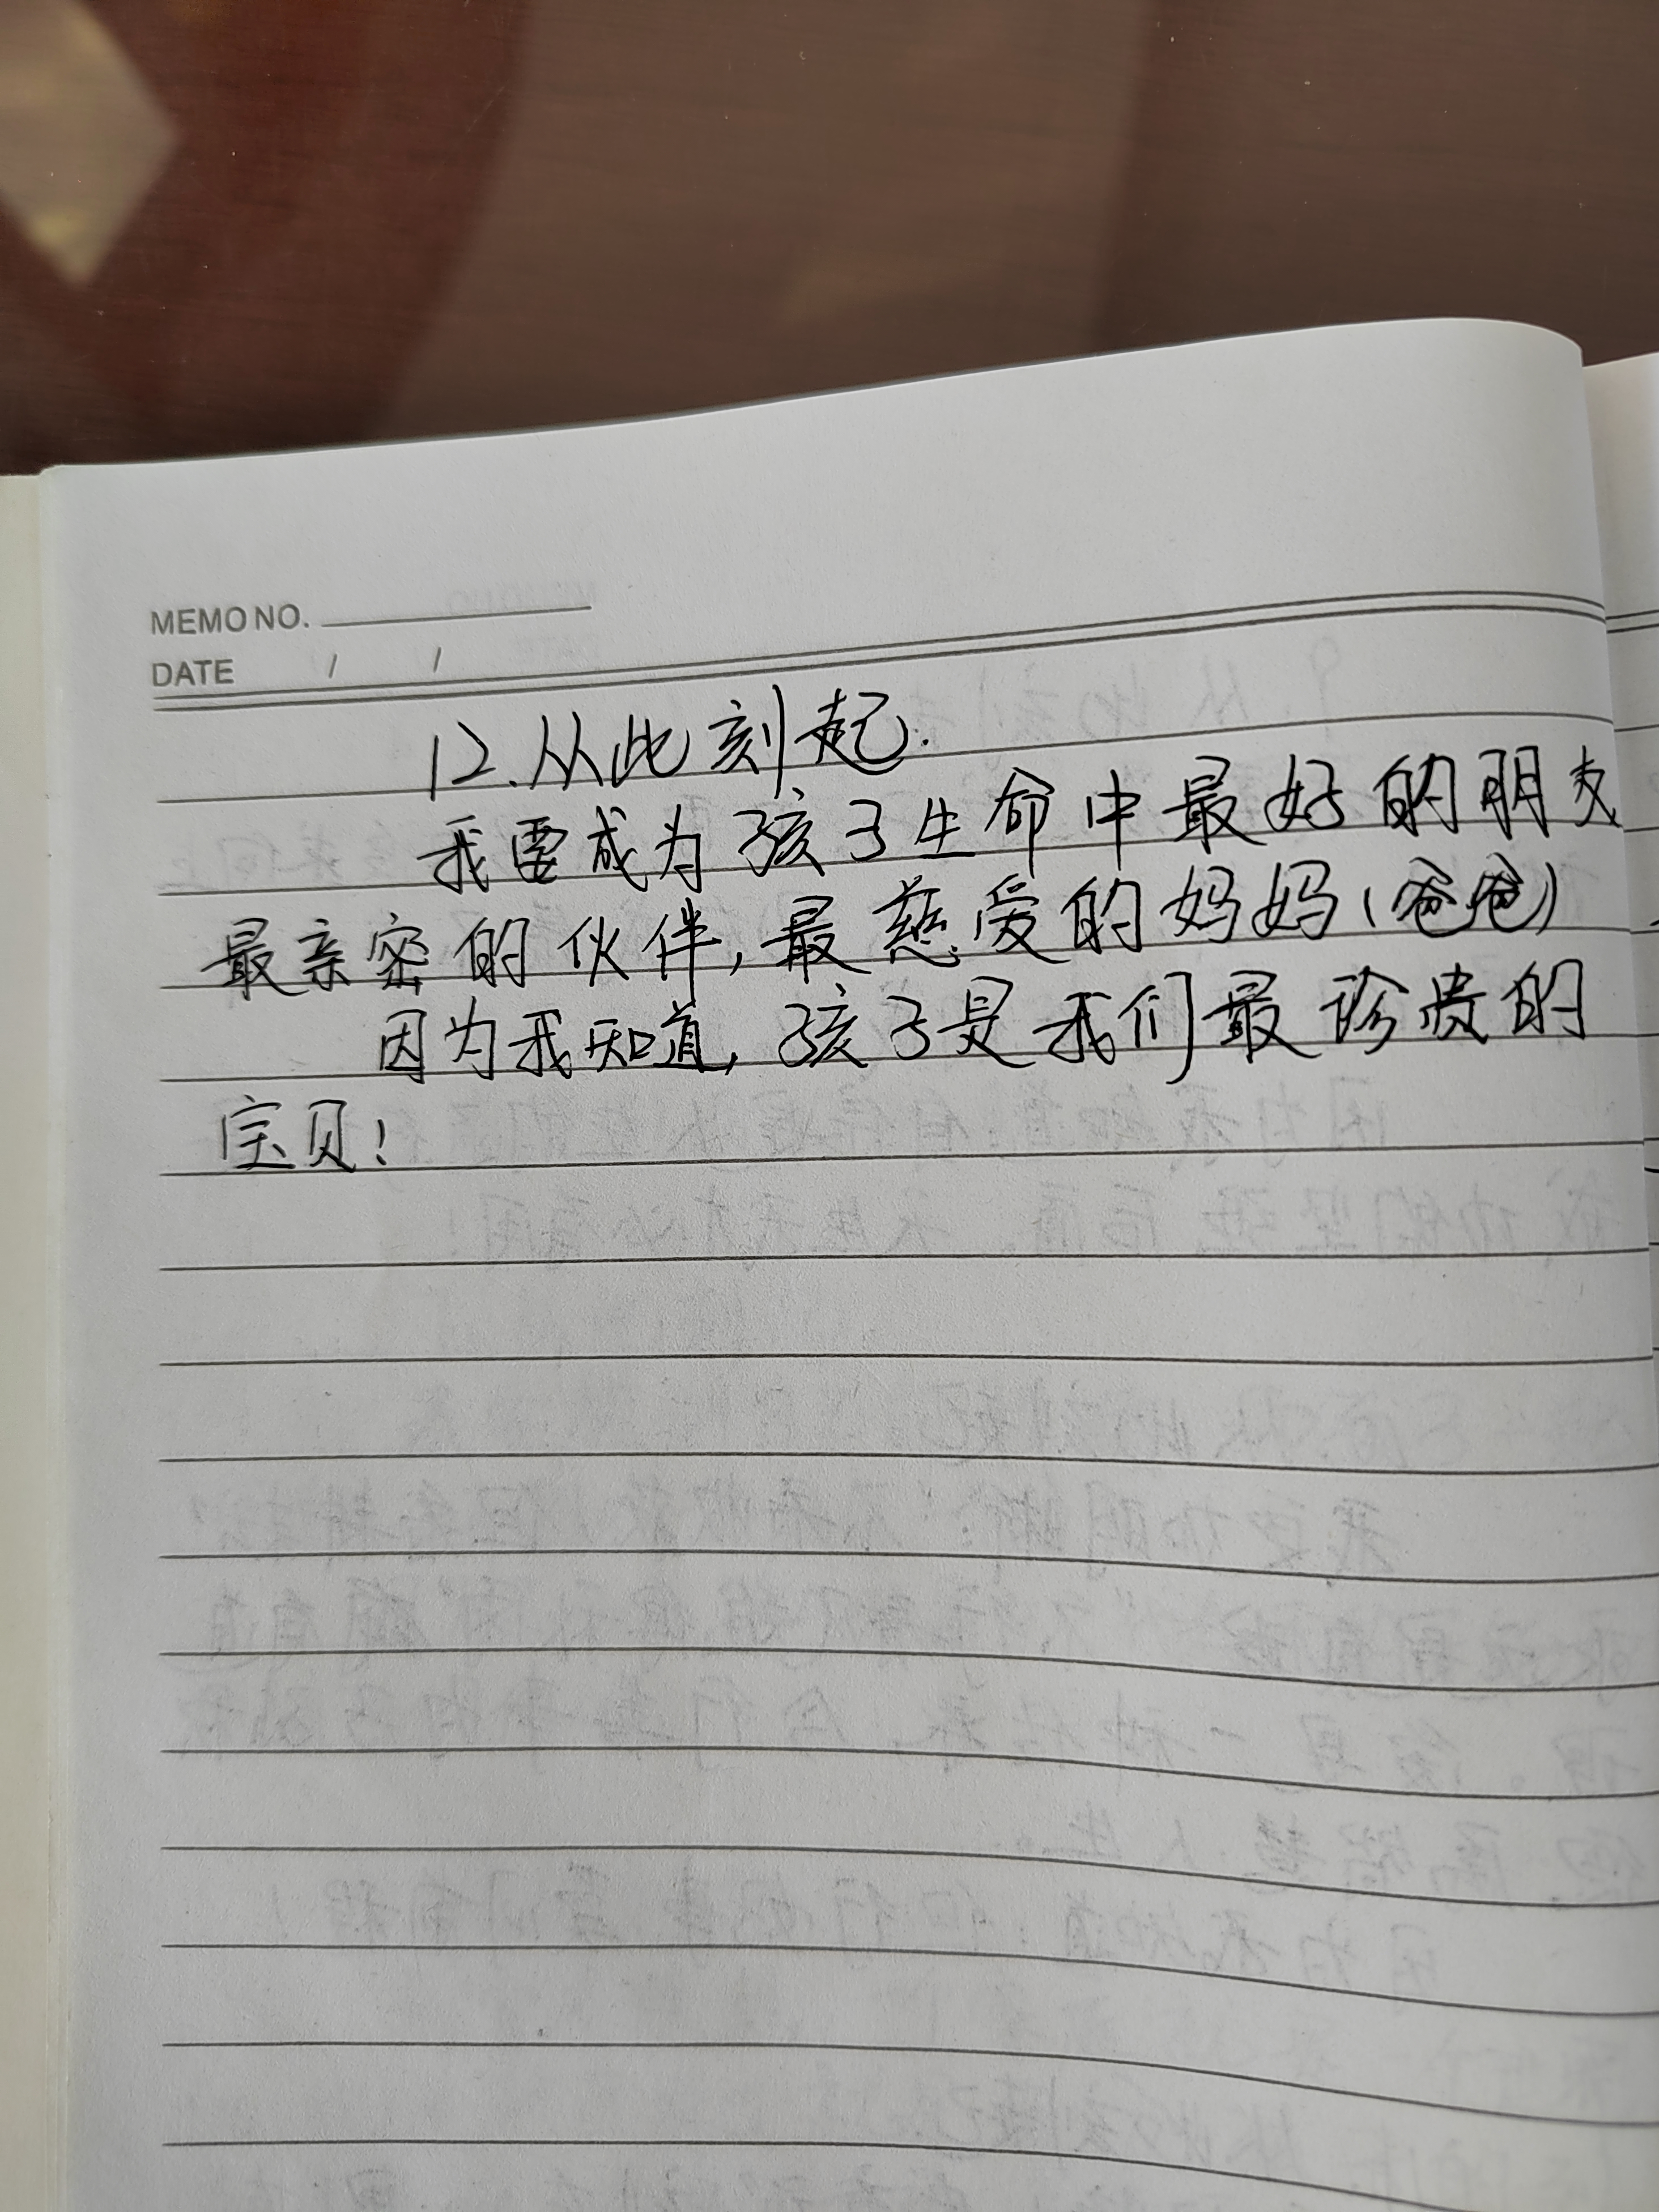 MEMO NO.
DATE / /
12.从此刻起.
我要成为孩子生命中最好的朋友
最亲密的伙伴,最慈爱的妈妈(爸爸)
因为我知道,孩子是我们最珍贵的
宝贝!